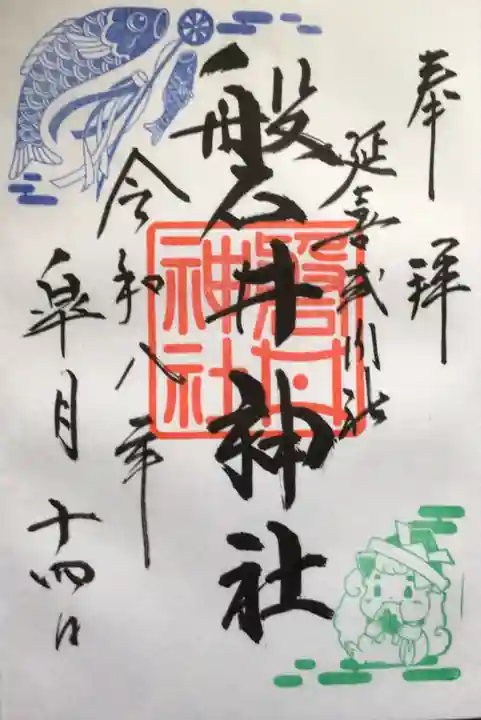 奉拝
延喜式内社
磐井神社
磐井神社
令和八年
皐月十四日